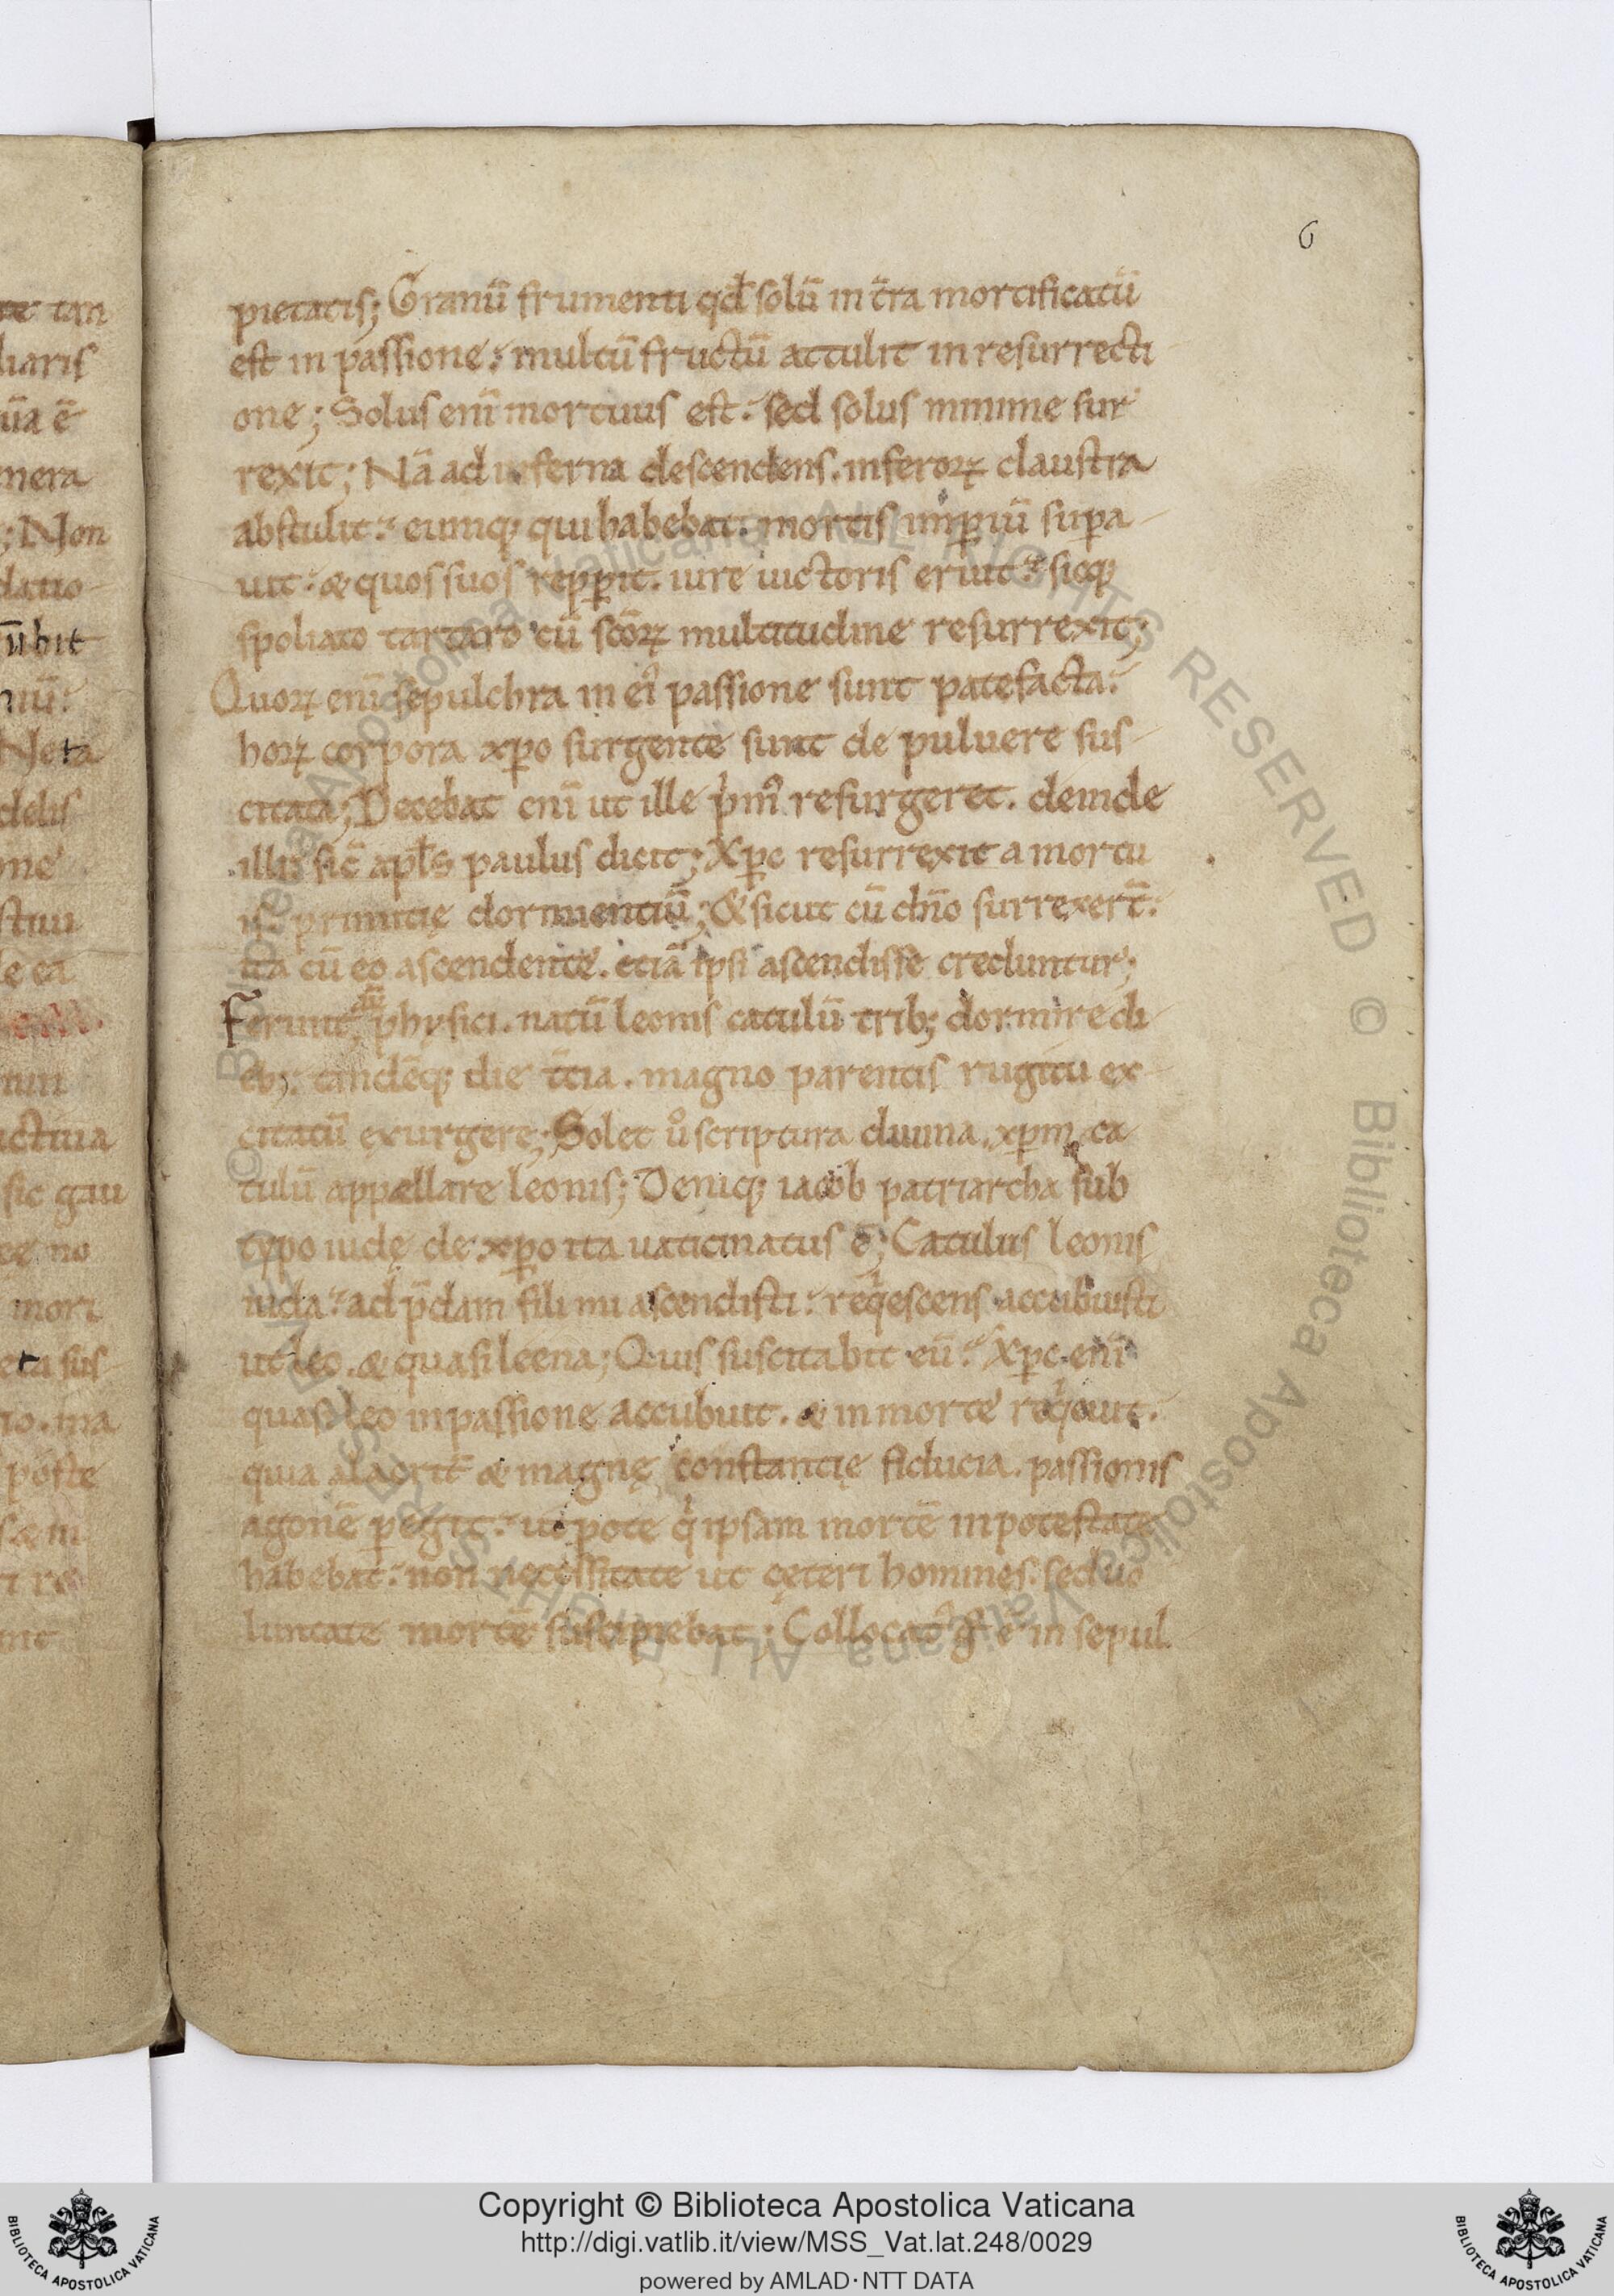 6
pietatis; Granū frumenti qđ solū in t̄ra mortificatū
est in passione. multū fructū attulit in resurrecti
one; Solus enī mortuus est. sed solus minime sur
rexit; Nā ad inferna descendens. inferoꝝ claustra
abstulit. eumq; qui habebat mortis imꝑiū suꝑa
uit. & quos suos repꝑit. iure uictoris eruit. sicq;
spoliato tartaro cū scōꝝ multitudine resurrexit;
Quoꝝ enī sepulchra in ei᾽ passione sunt patefacta.
hoꝝ corpora xp̄o surgente sunt de puluere sus
citata; Decebat enī ut ille p̍m᾽ resurgeret. deinde
illi; sic̄ apl̄s paulus dicit; Xp̄c resurrexit a mortu
is. primitię dormientiū; & sicut cū dn̄o surrexer̄t.
ita cū eo ascendente. etiā ipsi ascendisse creduntur;
Ferunt physici. natū leonis catulū trib; dormire di
eb;. tandēq; die t̄cia. magno parentis rugitu ex
citatū exurgere; Solet ůͦ scriptura diuina. xp̄m ca
tulū appellare leonis; Deniq; iacob patriarcha sub
typo iudę de xp̄o ita uaticinatus ē; Catulus leonis
iuda. ad p̄dam fili mi ascendisti. req̍escens accubuisti
ut leo. & quasi leena; Quis suscitabit eū. Xp̄c enī
quasi leo in passione accubuit. & in morte req̍euit.
quia alacrit̄ & magnę constantię fiducia. passionis
agonē ꝑegit. utpote q̍ ipsam mortē in potestate
habebat. non necessitate ut cęteri homines. sed uo
luntate mortē suscipiebat; Collocat᾽ g̊ ē in sepul
te tan
liaris
ūa ē
mera
; Non
datio
ūbit
niū.
Neta
delis
one
stiui
le ea
nun
uctiua
sic gau
eę no
mori
eta sus
no. ma
poste
Copyright © Biblioteca Apostolica Vaticana
http://digi.vatlib.it/view/MSS_Vat.lat.248/0029
powered by AMLAD·NTT DATA
BIBLIOTECA APOSTOLICA VATICANA
BIBLIOTECA APOSTOLICA VATICANA
© Biblioteca Apostolica Vaticana ALL RIGHTS RESERVED © Biblioteca Apostolica Vaticana ALL RIGHTS RESERVED